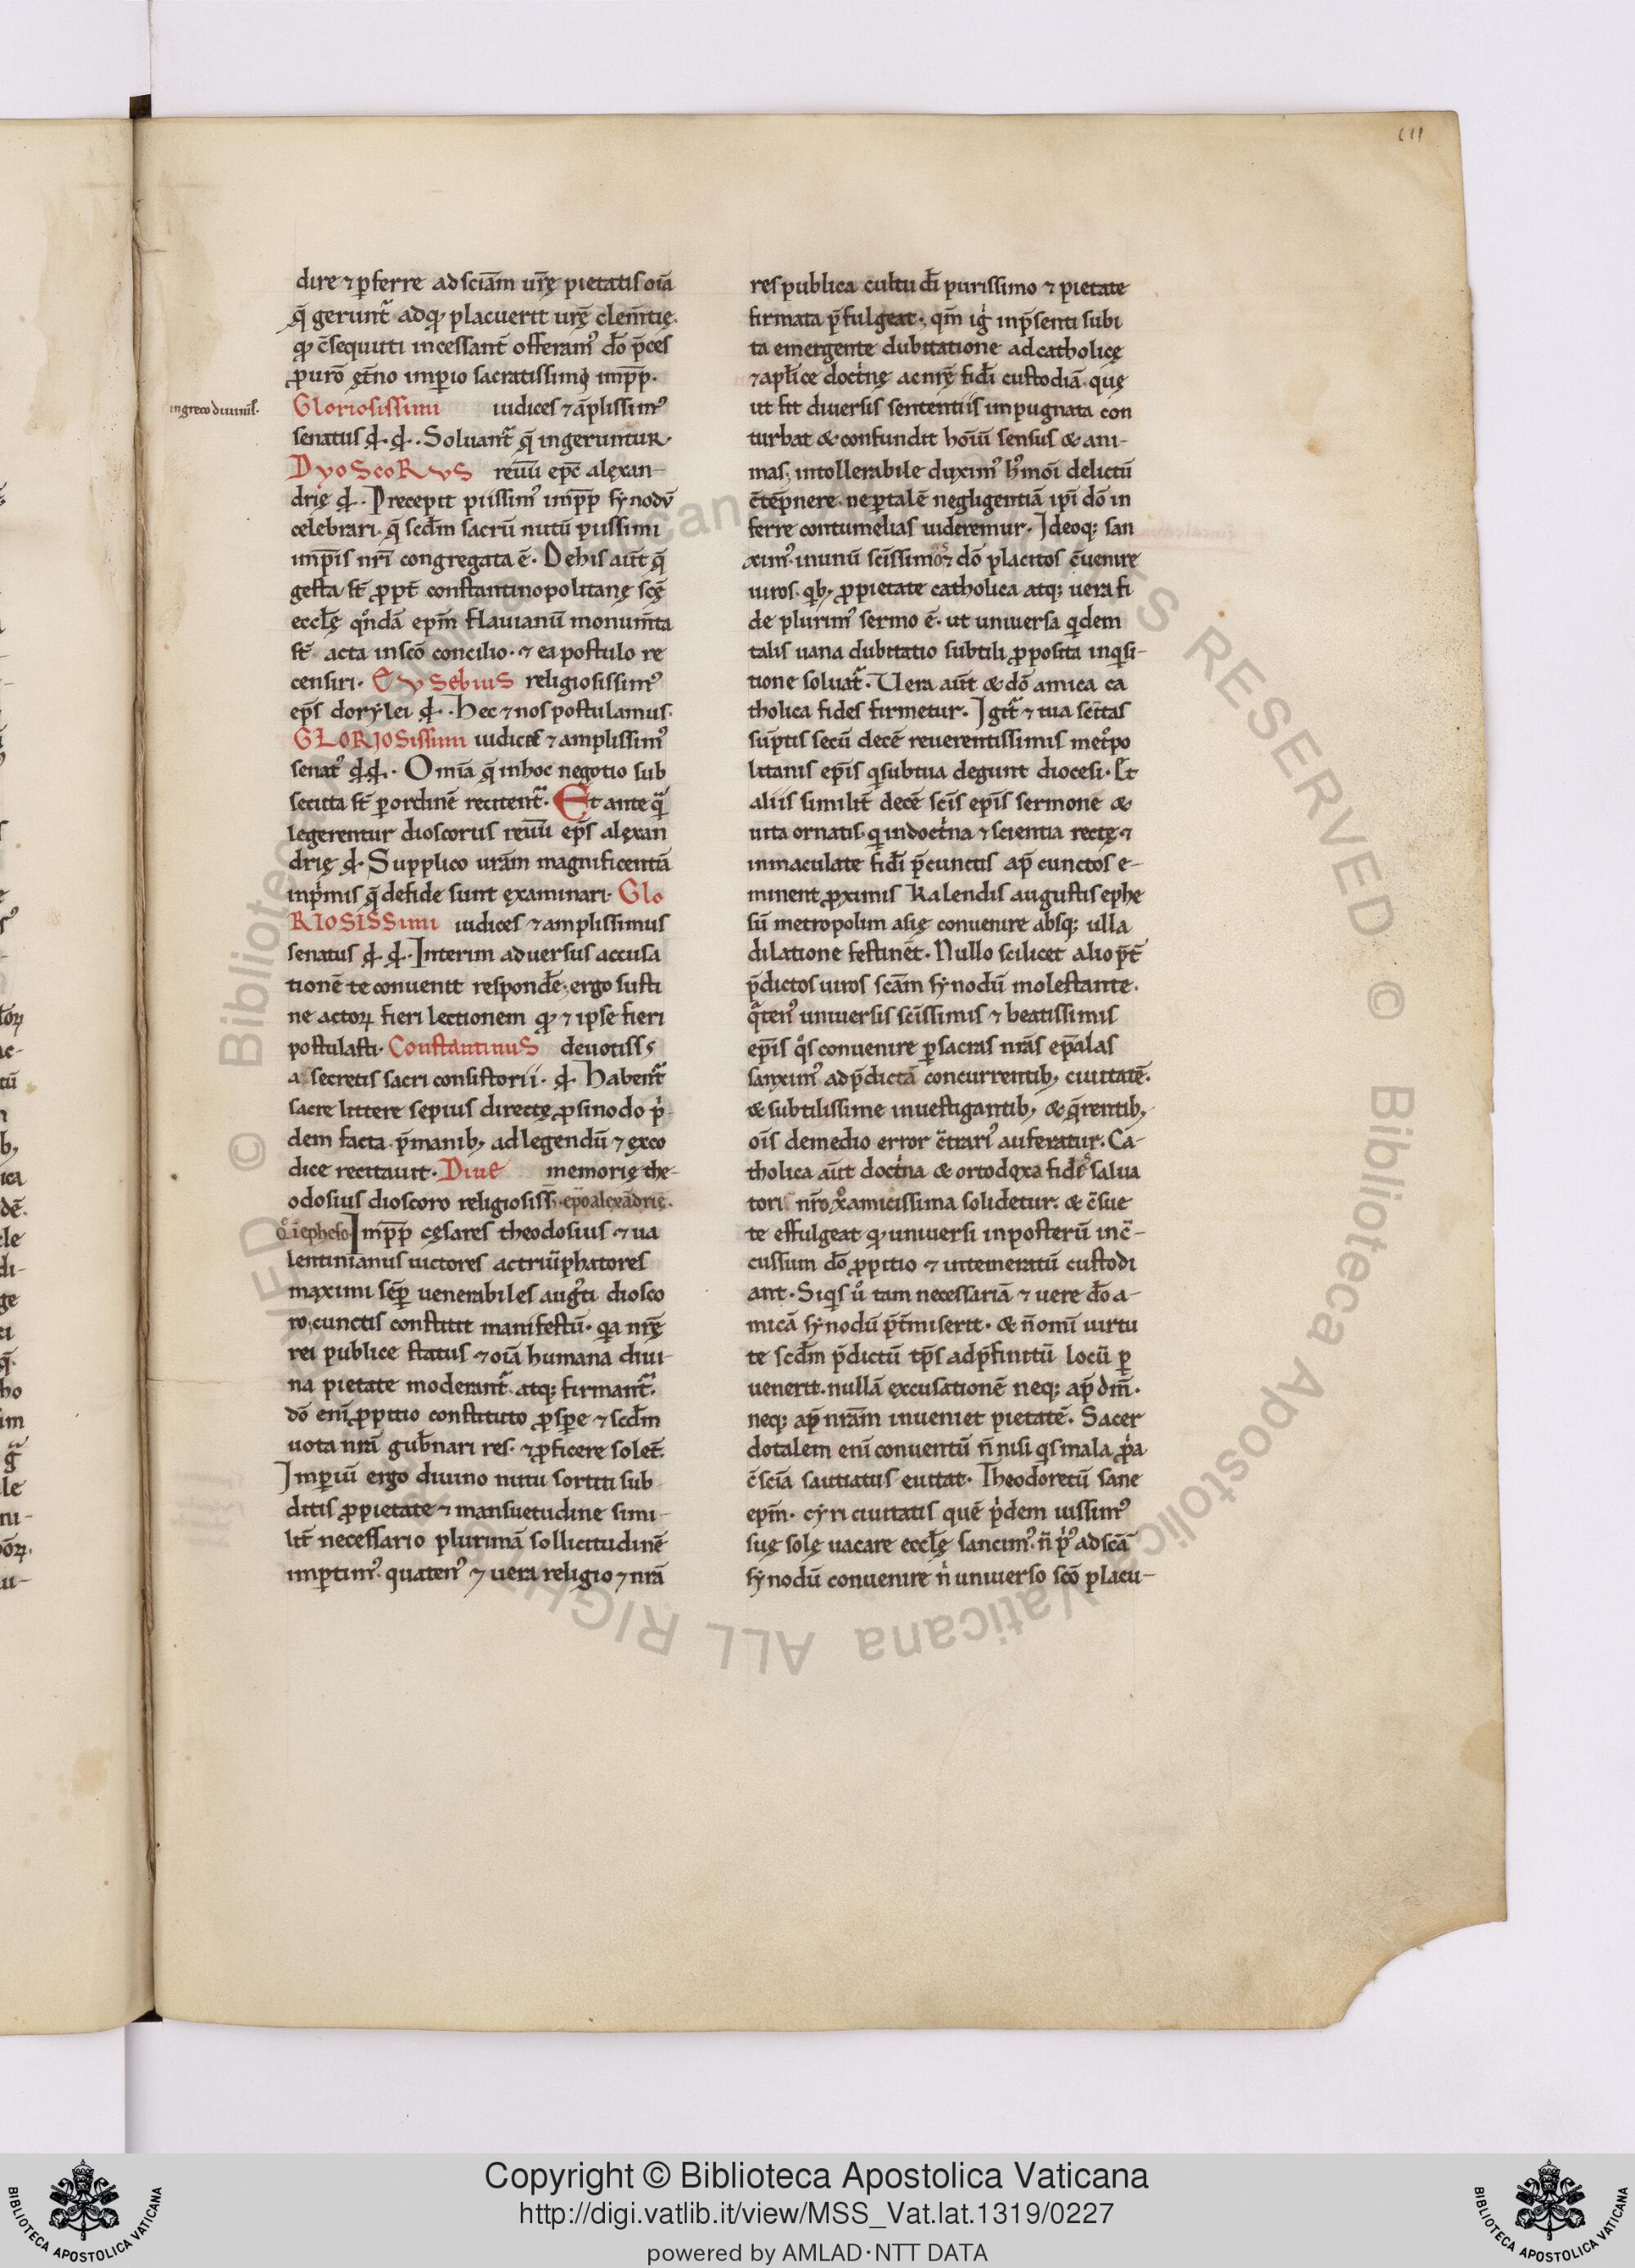 cııı
dire ⁊ ꝑferre ad sciam̅ ur̅ę pietatis oia̅
q̅ gerunt᷑ adq; placuerit ur̅ę clem̅tię.
qđ c̅sequuti incessant̅ offeram᷒ do̅ p̅ces
ꝓ uro̅ et̅no imꝑio sacratissimi imp̅p̅.
in greco diuiniss̅.
Gloriosissimi iudices ⁊ a̅plissim᷒
senatus đ. đ. Soluant᷑ q̅ ingeruntur.
DyoscoRus reuu̅ ep̅c alęxan-
drię đ. Precepit piissim᷒ imp̅p̅ sẏnodu̅
celebrari. q̅ scđm sacru̅ nutu̅ piissimi
imp̅is nr̅i congregata e̅. De his aut̅ q̅
gesta st̅ ꝓpt̅ constantinopolitanę scę̅
eccłę qͦnda̅ epm̅ flauianu̅ monum̅ta
st̅ acta in sco̅ concilio. ⁊ ea postulo re
censiri. EusebiuS religiosissim᷒
ep̅s dorẏlei đ. Hec ⁊ nos postulamus.
GLORIOSissimi iudices ⁊ amplissim᷒
senat᷒ đ.đ. Om̅ia q̅ in hoc negotio sub
secuta st̅ ꝑ ordine̅ recitent᷑. Et ante qᷓ
legerentur dioscorus reuu̅ ep̅s alęxan
drię đ. Supplico ura̅m magnificentia̅
inpͥmis q̅ de fide sunt ęxaminari. Glo
RIOSISSimi iudices ⁊ amplissimus
senatus đ đ. Interim aduersus accusa
tione̅ te conuenit respondē. ergo susti
ne actoꝝ fieri lectionem qđ ⁊ ipse fieri
postulasti. ConstantinuS deuotiss;
a secretis sacri consistorii. đ. Habent᷑
sacre littere sepius directę ꝓ sinodo pͥ-
dem facta. p̅ manib; ad legendu̅ ⁊ ęxco
dice recitauit. Diue memorię the-
odosius dioscoro religiosiss̅. ep̅o alęxa̅drię.
Imp̅p̅ cęsares theodosius ⁊ ua
lentinianus uictores ac triu̅phatores
maximi se̅ꝑ uenerabiles aug̅ti diosco
ro; cunctis constitit manifestu̅. qa nr̅ę
rei publice status ⁊ oia̅ humana diui-
na pietate moderant᷑ atq; firmant᷑.
do̅ eni̅ ꝓpitio constituto ꝓspe ⁊ scđm
uota nr̅a gub̅nari res. ⁊ ꝓficere solet̅.
Imꝑiu̅ ergo diuino nutu sortiti sub
ditis ꝓ pietate ⁊ mansuetudine simi-
lit̅ necessario plurima̅ sollicitudine̅
imꝑtim᷒. quaten᷒ ⁊ uera religio ⁊ nr̅a
res publica cultu di̅ purissimo ⁊ pietate
firmata p̅fulgeat. qm̅ igͥ in p̅senti subi
ta emergente dubitatione ad catholicę
⁊ apłice doctͥnę ac nrę̅ fidi̅ custodia̅. quę
ut fit diuersis sententiis impugnata con
turbat & confundit hoi̅u̅ sensus & ani-
mas; intollerabile duxim᷒ h᷒moi̅ delictu̅
c̅te̅pnere. ne ꝑ tale̅ negligentia̅ ipi̅ do̅ in
ferre contumelias uideremur. Ideoq; san
xim᷒. in unu̅ sci̅ssimos & do̅ placitos c̅uenire
uiros. qb; ꝓ pietate catholica atq; uera fi
de plurim᷒ sermo e̅. ut uniuersa qdem
talis uana dubitatio subtili ꝓposita inqsi-
tione soluat᷑. Uera aut̅ & do̅ amica ca
tholica fides firmetur. Igit᷑ ⁊ tua sci̅tas
su̅ptis secu̅ dece̅ reuerentissimis metͦpo
litanis ep̅is q sub tua degunt diocesi. Et
aliis similit̅ dece̅ sci̅s ep̅is sermone &
uita ornatis. q in doctͥna ⁊ scientia rectę ⁊
inmaculate fidi̅ p̅cunctis ap̅ cunctos e-
minent ꝓximis Kalendis augustis ephe
su̅ metropolim asię conuenire absq; ulla
dilatione festinet̅. Nullo scilicet alio p̅t̅
p̅dictos uiros sca̅m sẏnodu̅ molestante.
qᷓten᷒ uniuersis sci̅ssimis ⁊ beatissimis
ep̅is qͦs conuenire ꝑ sacras nra̅s ep̅alas
sanxim᷒ ad p̅dicta̅ concurrentib; ciuitate̅.
& subtilissime inuestigantib; & q̅rentib;
oi̅s de medio error c̅trari᷒ auferatur. Ca-
tholica aut̅ doctͥna & ortodęxa fides salua
tori nr̅o xͦ amicissima solidetur. & c̅sue
te effulgeat qđ uniuersi in posteru̅ inc̅-
cussum do̅ ꝓpitio ⁊ intemeratu̅ custodi
ant. Siqs uͦ tam necessaria̅ ⁊ uere do̅ a-
mica̅ sẏnodu̅ p̅t̅miserit. & n̅ omi̅ uirtu
te scđm p̅dictu̅ tp̅s ad p̅finitu̅ locu̅ ꝑ
uenerit. nulla̅ ęxcusatione̅ neq; ap̅ dm̅.
neq; ap̅ nra̅m inueniet pietate̅. Sacer
dotalem eni̅ conuentu̅ n̅ nisi qs mala ꝓͥa
c̅sci̅a sautiatus euitat. Theodoretu̅ sane
epm̅. cẏri ciuitatis que̅ pͥdem iussim᷒
suę solę uacare eccłę sancim᷒. n̅ pͥ᷒ ad sca̅
sẏnodu̅ conuenire nͥ uniuerso sco̅ placu-
Copyright © Biblioteca Apostolica Vaticana
http://digi.vatlib.it/view/MSS_Vat.lat.1319/0227
powered by AMLAD·NTT DATA
BIBLIOTECA APOSTOLICA VATICANA
BIBLIOTECA APOSTOLICA VATICANA
© Biblioteca Apostolica Vaticana ALL RIGHTS RESERVED © Biblioteca Apostolica Vaticana ALL RIGHTS RESERVED